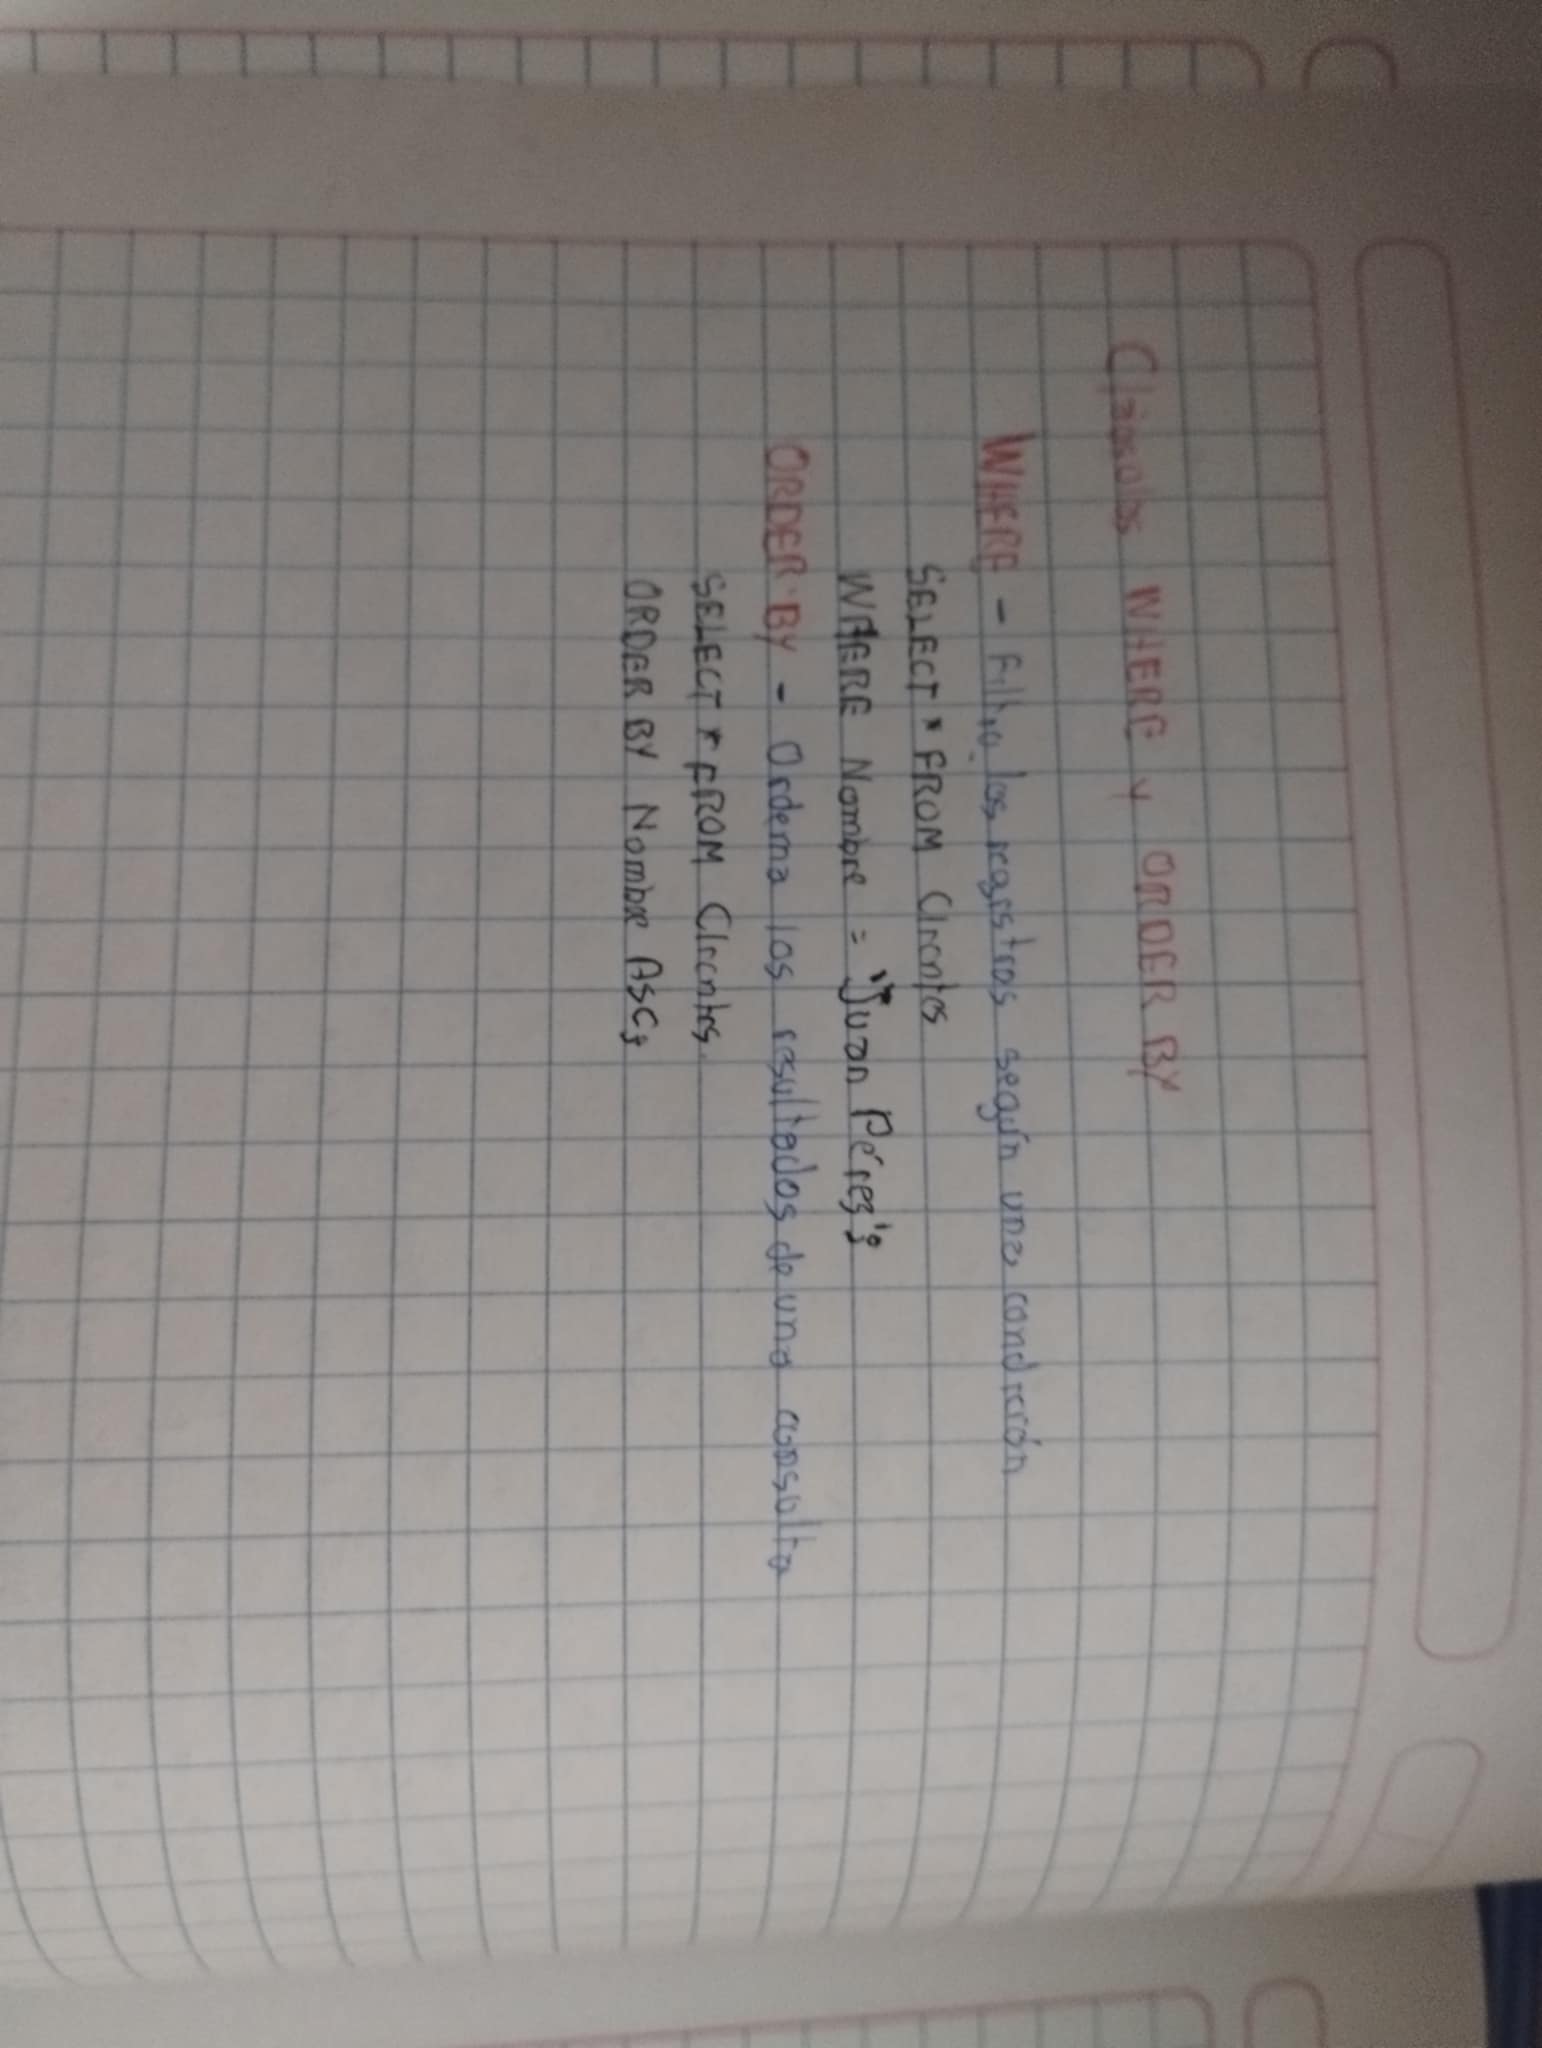 Cláusulas WHERE y ORDER BY
WHERE - Filtra los registros según una condición
SELECT * FROM Clientes
WHERE Nombre = 'Juan Pérez';
ORDER BY - Ordena los resultados de una consulta
SELECT * FROM Clientes
ORDER BY Nombre ASC;